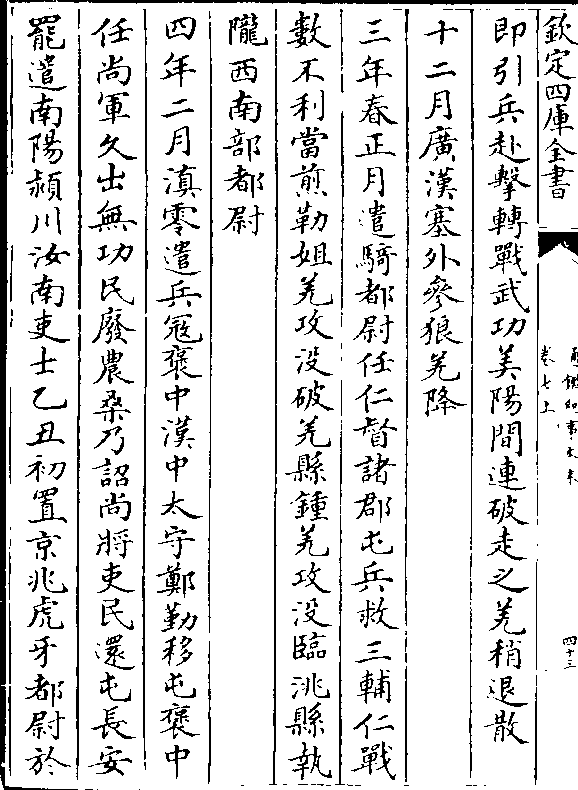 欽定四庫全書
通鑑紀事本末
卷七上
四十三
即引兵赴擊轉戰武功美陽間連破走之羌稍退散
十二月廣漢塞外參狼羌降
三年春正月遣騎都尉任仁督諸郡屯兵救三輔仁戰
數不利當煎勒姐羌攻沒破羌縣鍾羌攻沒臨洮縣執
隴西南部都尉
四年二月滇零遣兵寇褒中漢中太守鄭勤移屯褒中
任尚軍久出無功民廢農桑乃詔尚將吏民還屯長安
罷遣南陽潁川汝南吏士乙丑初置京兆虎牙都尉於